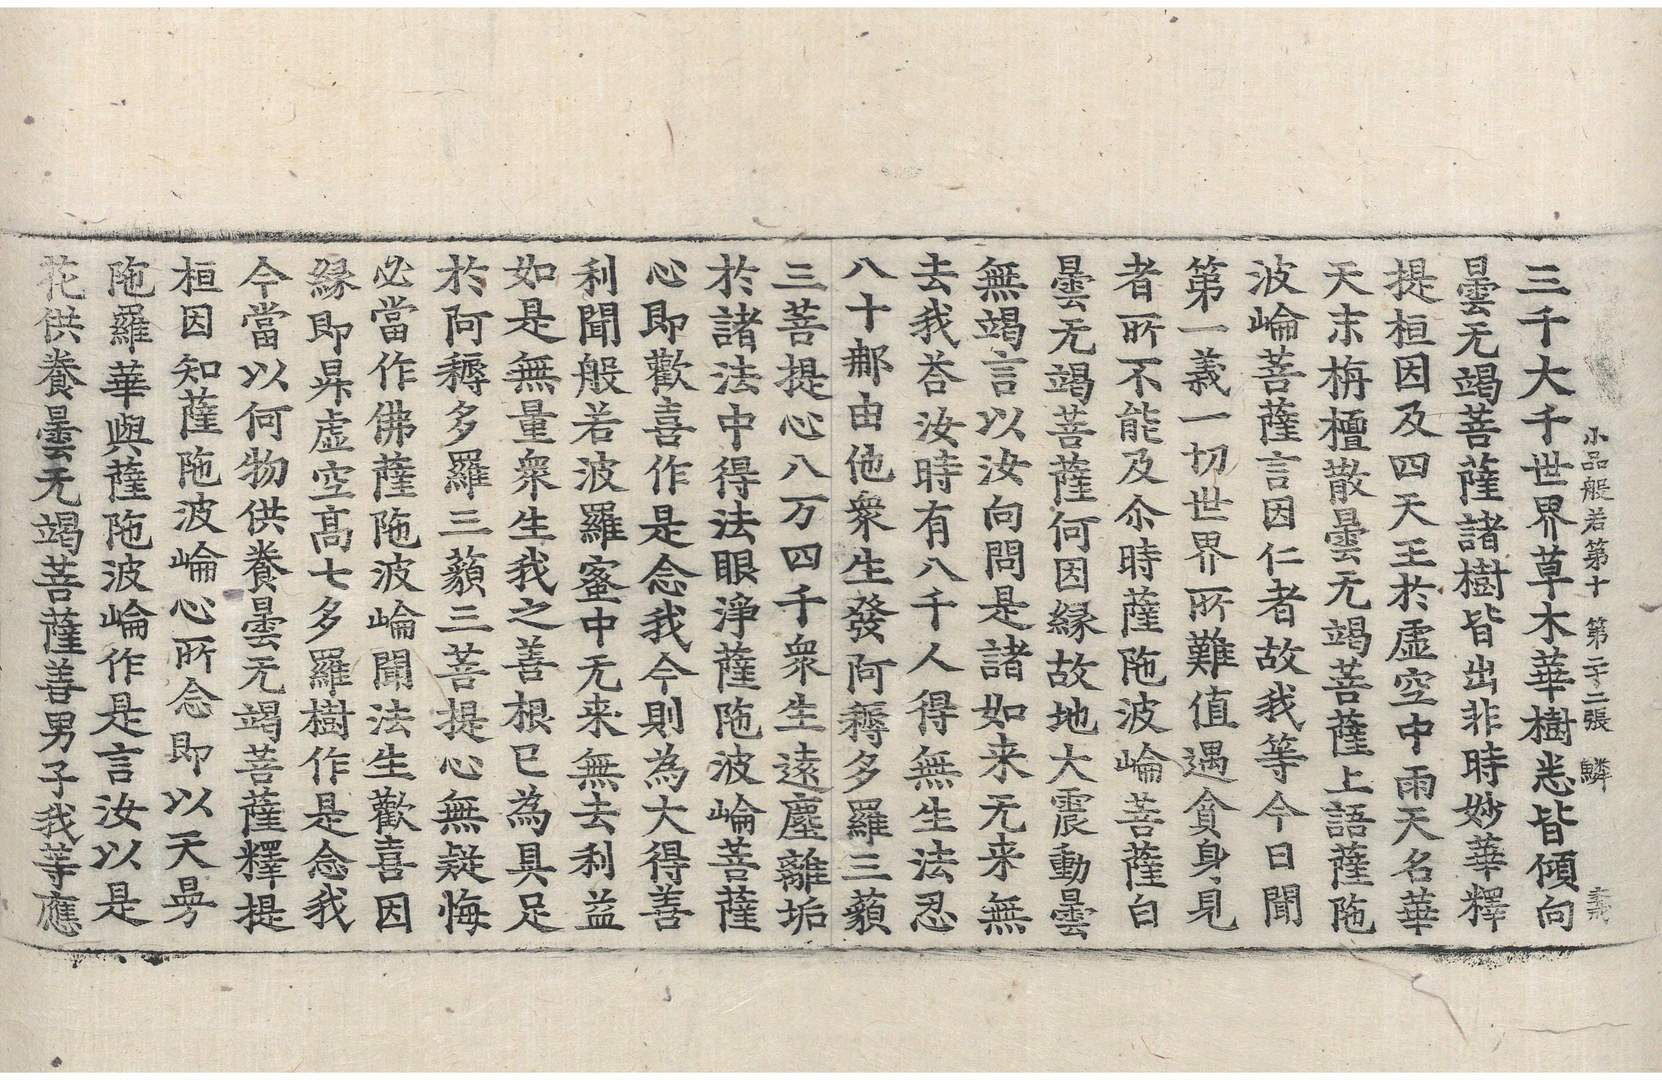 小品般若第十 第二十二張 鱗 義
三千大千世界草木華樹悉皆傾向
曇无竭菩薩諸樹皆出非時妙華釋
提桓因及四天王於虛空中雨天名華
天末栴檀散曇无竭菩薩上語薩陁
波崘菩薩言因仁者故我等今日聞
第一義一切世界所難值遇貪身見
者所不能及尒時薩陁波崘菩薩白
曇无竭菩薩何因緣故地大震動曇
無竭言以汝向問是諸如来无来無
去我荅汝時有八千人得無生法忍
八十那由他衆生發阿耨多羅三藐
三菩提心八万四千衆生遠塵離垢
於諸法中得法眼淨薩陁波崘菩薩
心即歡喜作是念我今則為大得善
利聞般若波羅蜜中无来無去利益
如是無量衆生我之善根已為具足
於阿耨多羅三藐三菩提心無疑悔
必當作佛薩陁波崘聞法生歡喜因
緣即昇虛空髙七多羅樹作是念我
今當以何物供養曇无竭菩薩釋提
桓因知薩陁波崘心所念即以天曼
陁羅華與薩陁波崘作是言汝以是
花供養曇无竭菩薩善男子我等應